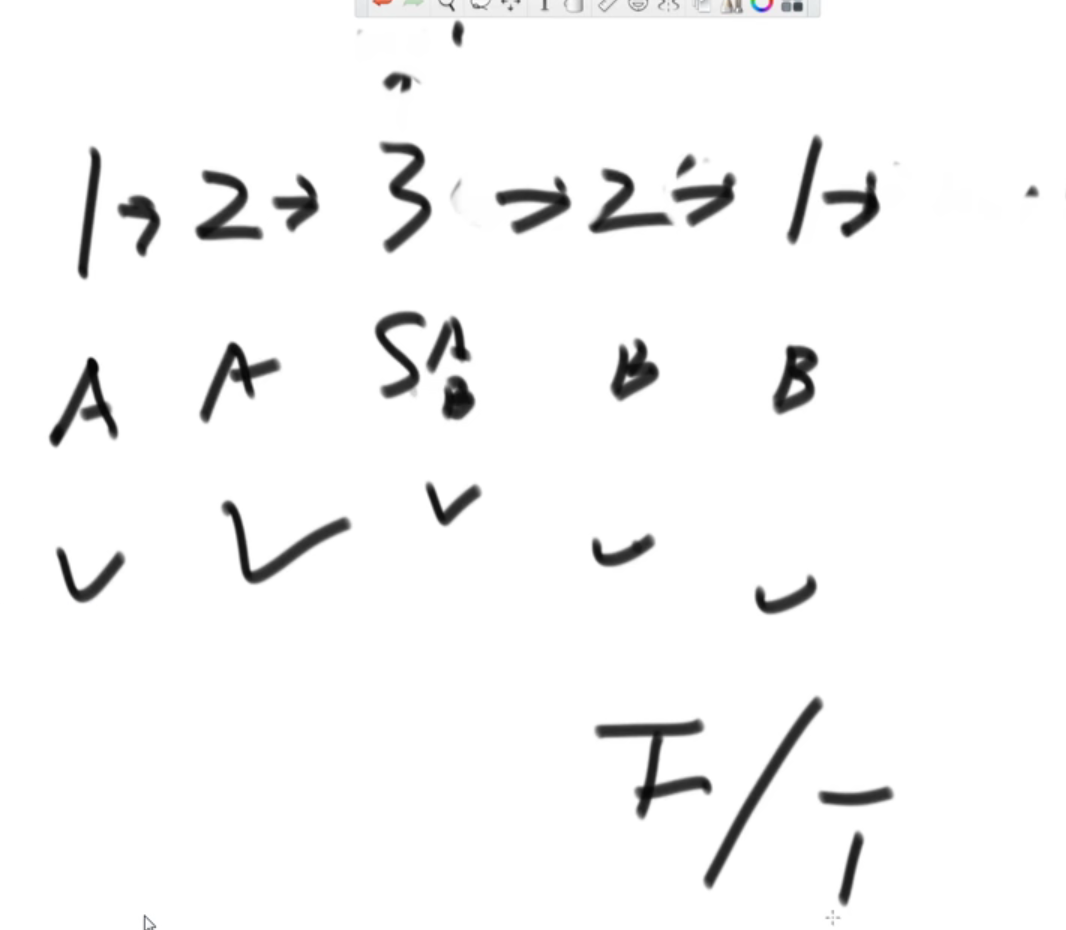 1→2→3→2→1→
A A S A B B B
✓ ✓ ✓ ✓ ✓
F/T